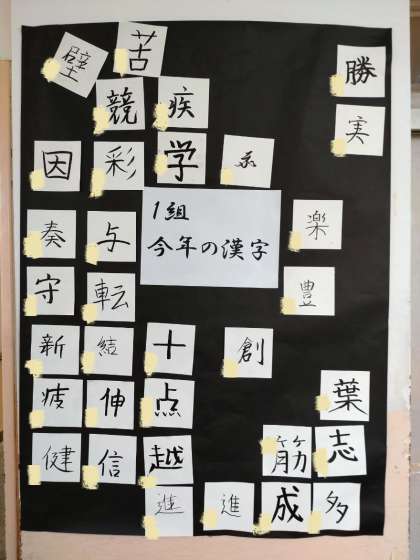 壁 苦 勝
競 疾 実
因 彩 学 示
1組
今年の漢字
奏 与 楽
守 転 豊
新 結 十 創
疲 伸 点 葉
健 信 越 筋 志
進 進 成 多